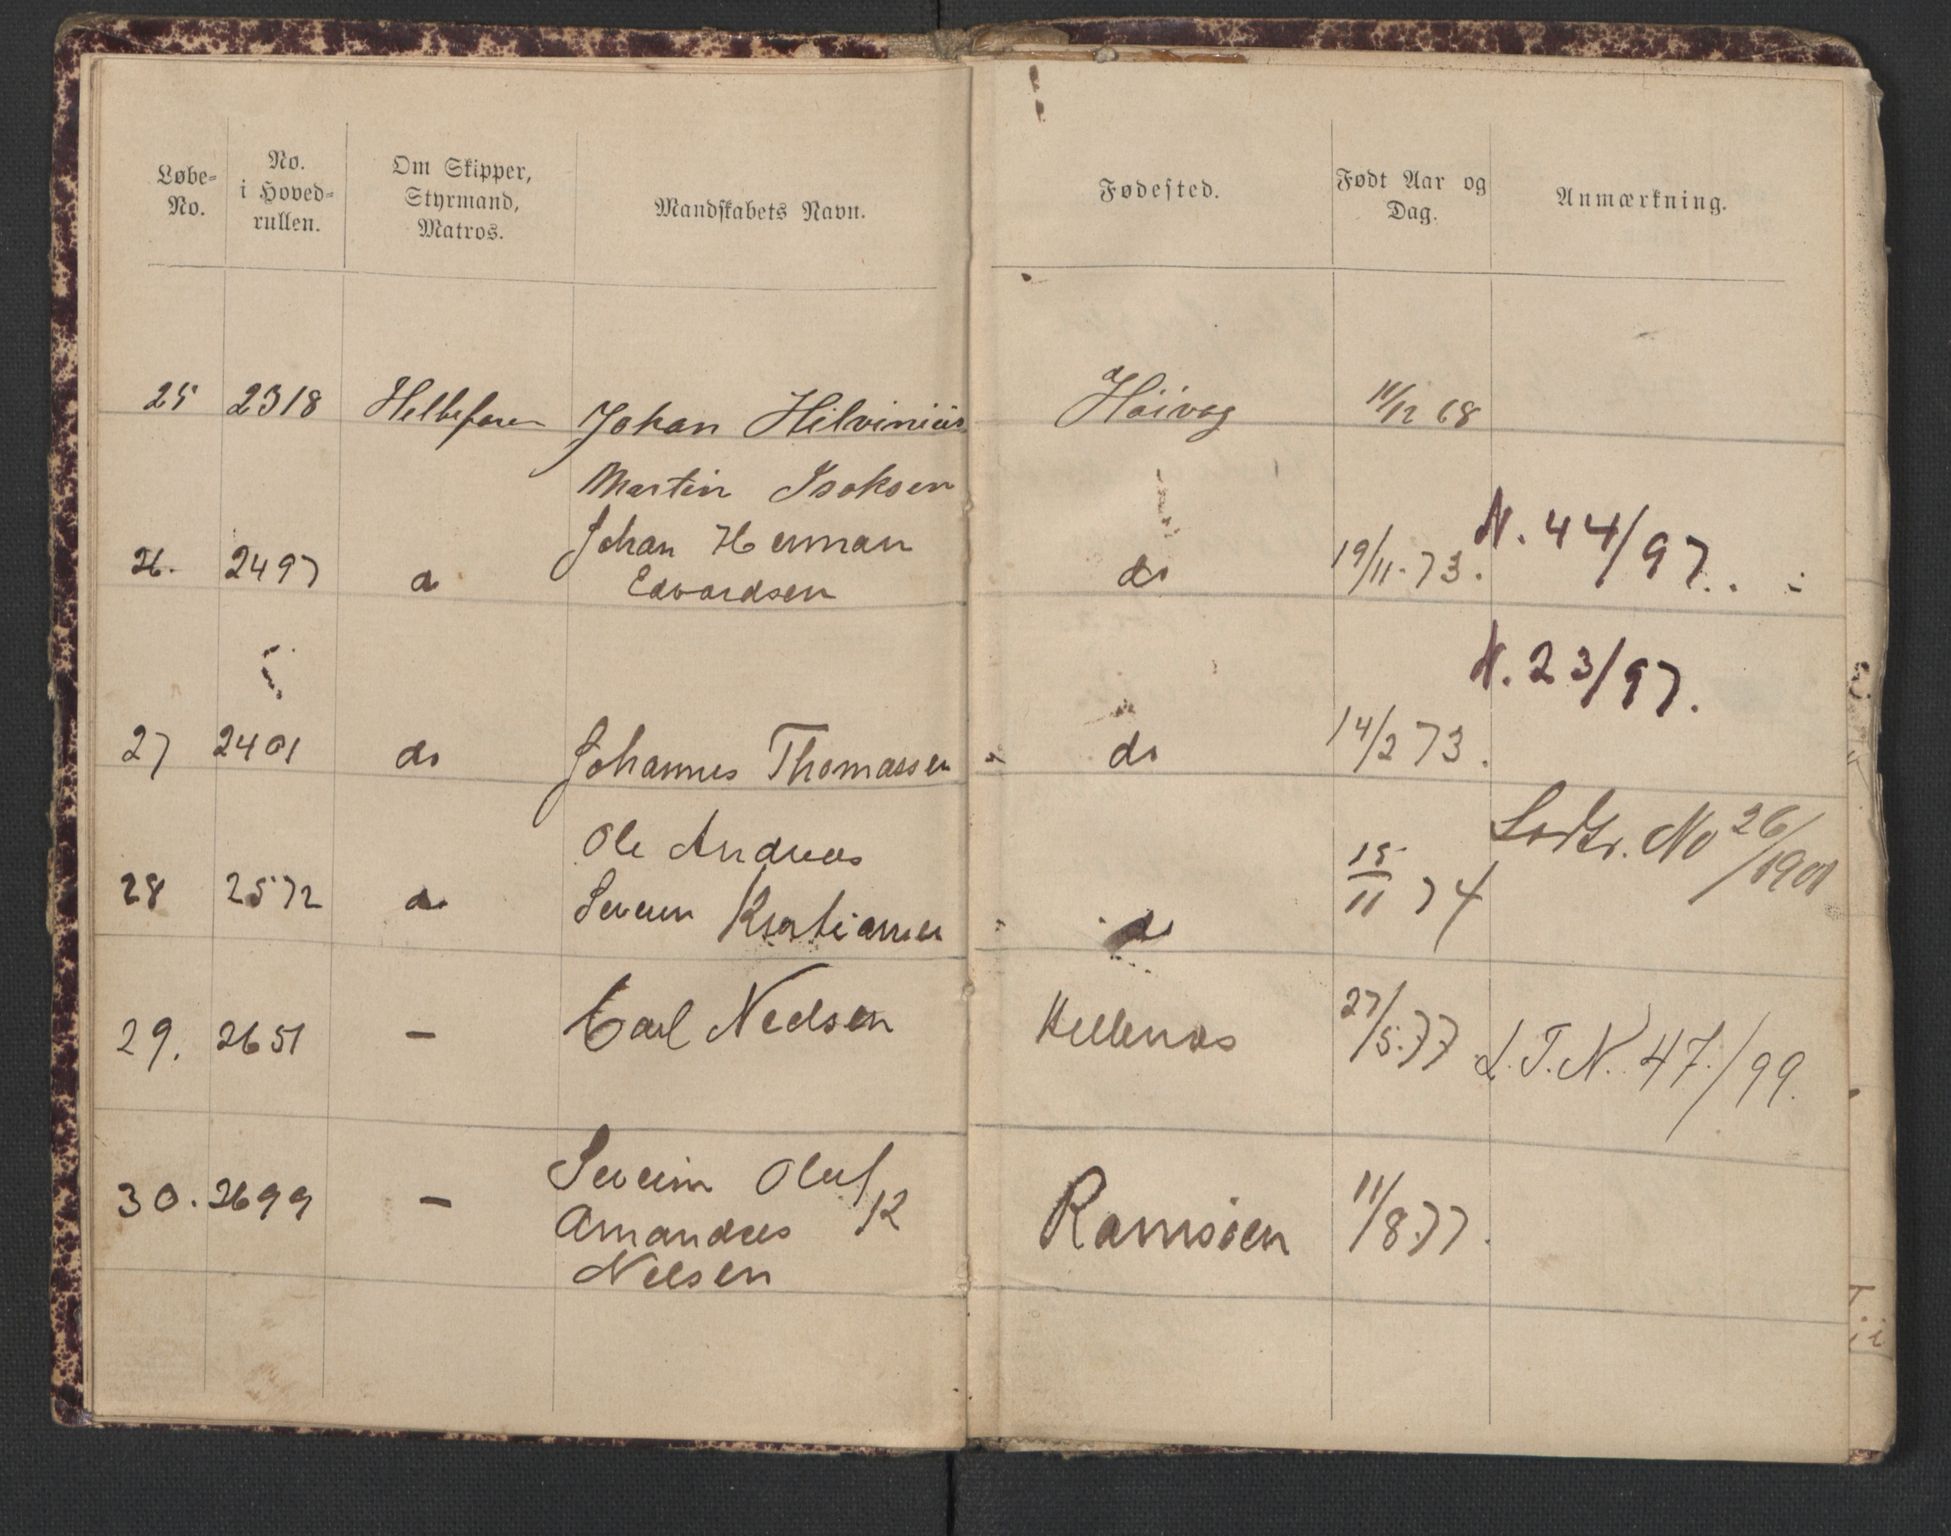 Løbe-No.
No. i Hoved-rullen.
Om Skipper, Styrmand, Matros.
Mandskabets Navn.
Fødested.
Født Aar og Dag.
Anmærkning.
25 2318 Helbefaren Johan Hilvinius Høivag 11/12 68
Martin Isaksen
Johan Herman
26. 2497 do Edvardsen do 19/11. 73. N. 44/97.
27 2401 do Johannes Thomassen do 14/2 73. N. 23/97.
Ole Andreas
28 2572 do Severin Kristiansen do 15/11 74 No 26/1901
29. 2651 — Carl Nielsen Hellenæs 27/5.77 L.T.N. 47./99.
30. 2699 — Severin Oluf
Amandus K Ramsøen 11/8.77.
Nielsen